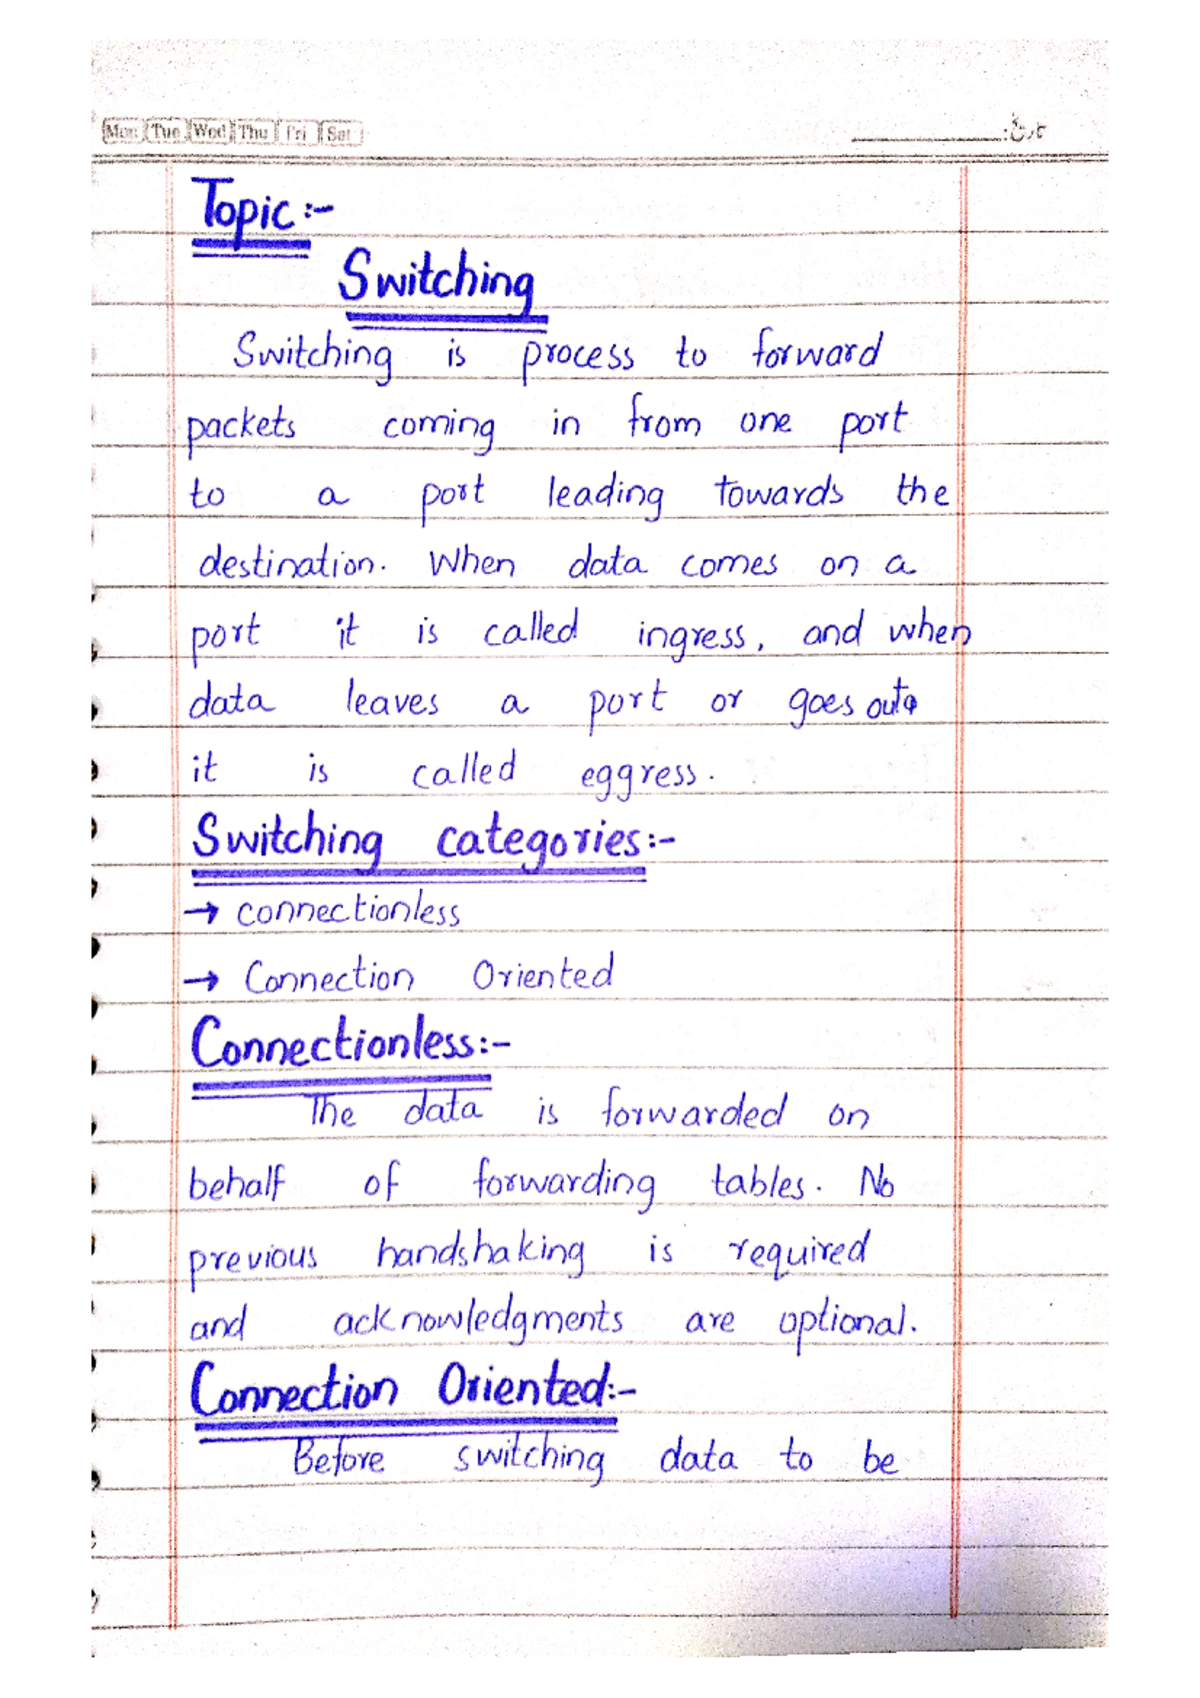 Mon Tue Wed Thu Fri Sat
تاریخ:
Topic:-
Switching
Switching is process to forward
packets coming in from one port
to a port leading towards the
destination. When data comes on a
port it is called ingress, and when
data leaves a port or goes out
it is called eggress.
Switching categories:-
→ connectionless
→ Connection Oriented
Connectionless:-
The data is forwarded on
behalf of forwarding tables. No
previous handshaking is required
and acknowledgments are optional.
Connection Oriented:-
Before switching data to be